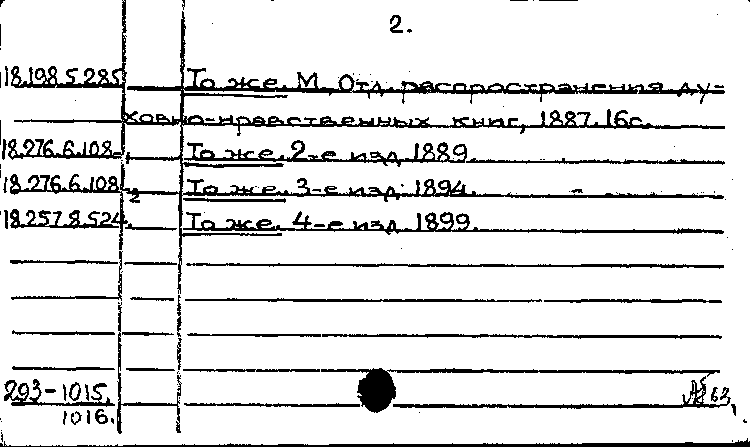 2.
18.198.5.285 То же. М, Отд. распространения ду-
ховно-нравственных книг, 1887. 16с.
18.276.6.108-1 То же. 2-е изд. 1889.
18.276.6.108-2 То же. 3-е изд. 1894.
18.257.8.524. То же. 4-е изд. 1899.
293-1015.
1016.
63